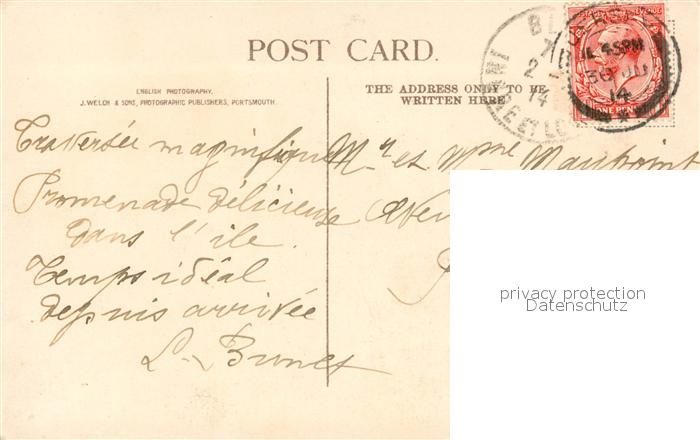 POST CARD.
ENGLISH PHOTOGRAPHY.
J. WELCH & SONS, PHOTOGRAPHIC PUBLISHERS, PORTSMOUTH.
THE ADDRESS ONLY TO BE
WRITTEN HERE
Traversée magnifique
Promenade délicieuse
dans l'ile.
Temps idéal
depuis arrivée
L. Brunet
Mr et Mme
REVENUE
ONE PENNY
4.45PM
30 JU
14
privacy protection
Datenschutz